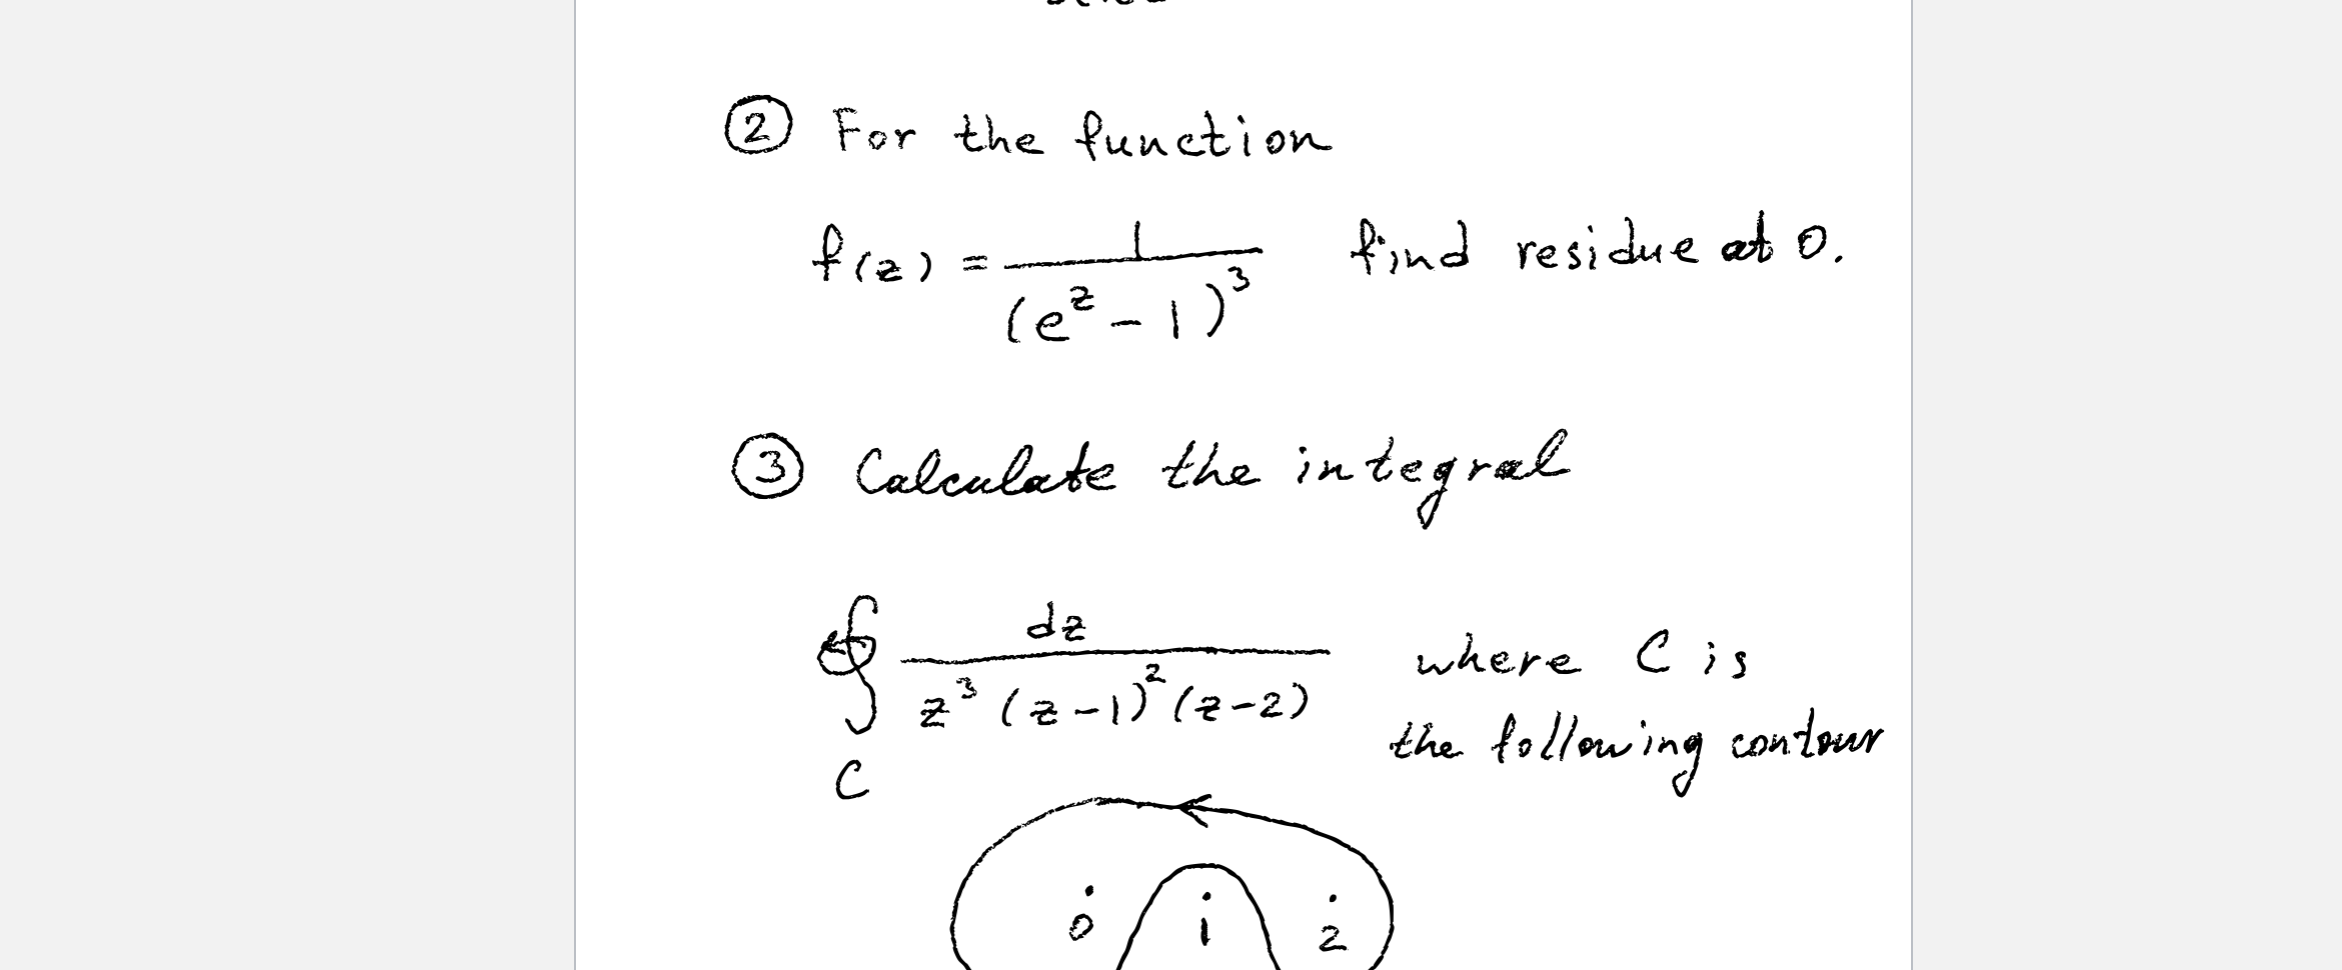 ② For the function
f(z) = 1/(e^z - 1)^3 find residue at 0.
③ Calculate the integral
∮_C dz/(z^3 (z-1)^2 (z-2)) where C is
the following contour
0 1 2